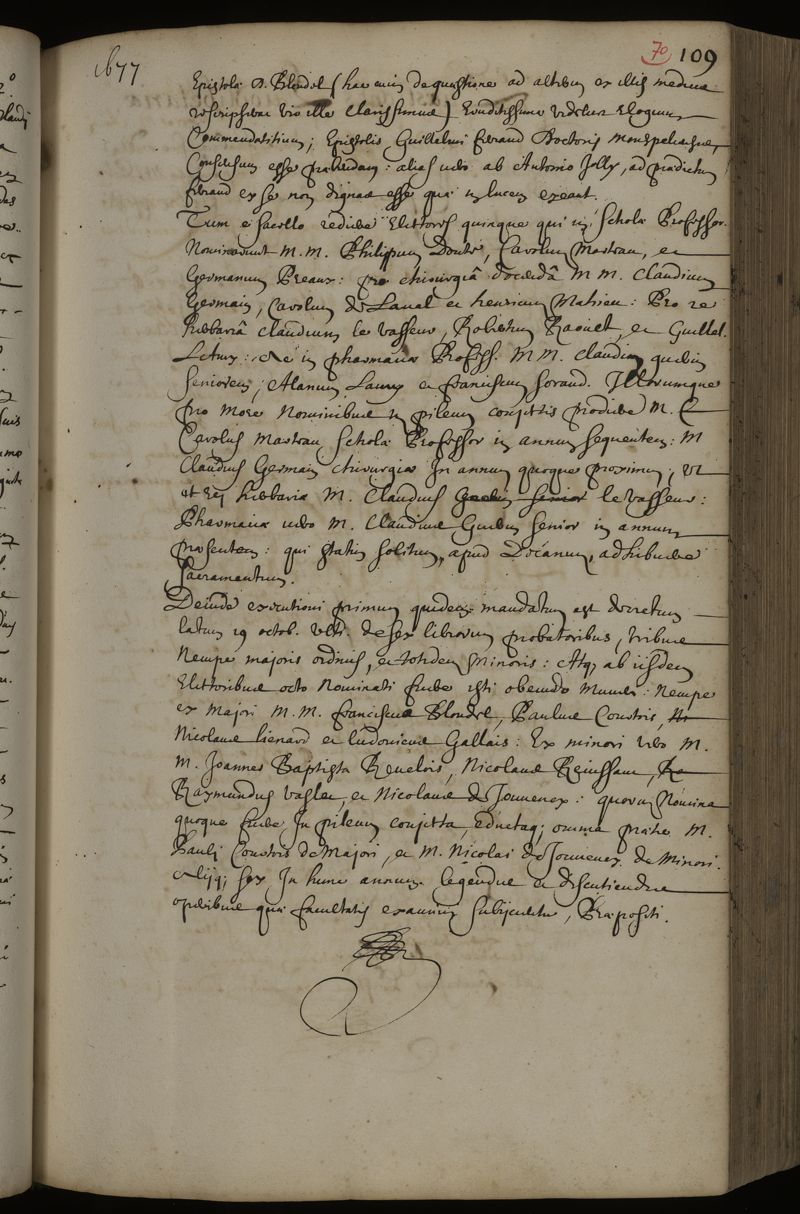 1677
70 109
Epistola D. Blondel (hac enim de quæstione ad alterum ex illis medicus
rescripserat vir ille clarissimus) Eruditissimæ videtur Elogium
Commendatitium; Epistolis Guillelmi feraud Doctoris Monspeliensis,
Consensum esse præbendum: alias vero ab Antonio Jolly, ad prædictum
feraud ex se non dignas esse quæ in lucem exeant.
Tum e sacello rediere Electores quinque qui in Scholæ Professor.
Nominarunt M.M. Philippum Douté, Carolum Mastrau, et
Germanum Preaux: pro chirurgiâ docendâ M M. Claudium
Germain, Carolum de Laval et henricum Mahieu: Pro re
herbariâ claudium le vasseur, Robertum Raouet, et Guillel.
in pharmaciæ Profess. M M. Claudium quebin
seniorem, Alanum Lamy et franciscum foraud. Illorumque
pro more Nominibus in pileum conjectis prodiere M.
Carolus Mastrau Scholæ Professor in annum sequentem: M
Claudius Germain chirurgiæ In annum quoque proximum, ut
et rei herbariæ M. Claudius le vasseur:
Pharmaciæ vero M. Claudius Quebin senior in annum
præsentem: qui statim solitum, apud Decanum, adhibuere
sacramentum.
Deinde executioni primum quidem mandatum est decretum
latum 19 octob. ult. de sex librorum probatoribus, tribus
Nempe majoris ordinis, et totidem Minoris: Atq; ab iisdem
Electoribus octo Nominati fuere isti obeundo Muneri: Nempe
ex Majori M.M. franciscus Blondel, Paulus Courtois,
Nicolaus lienard et ludovicus Gallais: Ex minori vero M.
M. Joannes Baptista , Nicolaus ,
Raymundus , et Nicolaus de Jouvenex: quorum Nomina
quoque fuere In pileum conjecta, eductaq; omnia præter M.
Pauli Courtois de Majori, et M. Nicolai de Jouvenex de Minori.
Aliiq; sex In hunc annum legendis et discutiendis
operibus quæ facultatis examini subjicientur, Præpositi.